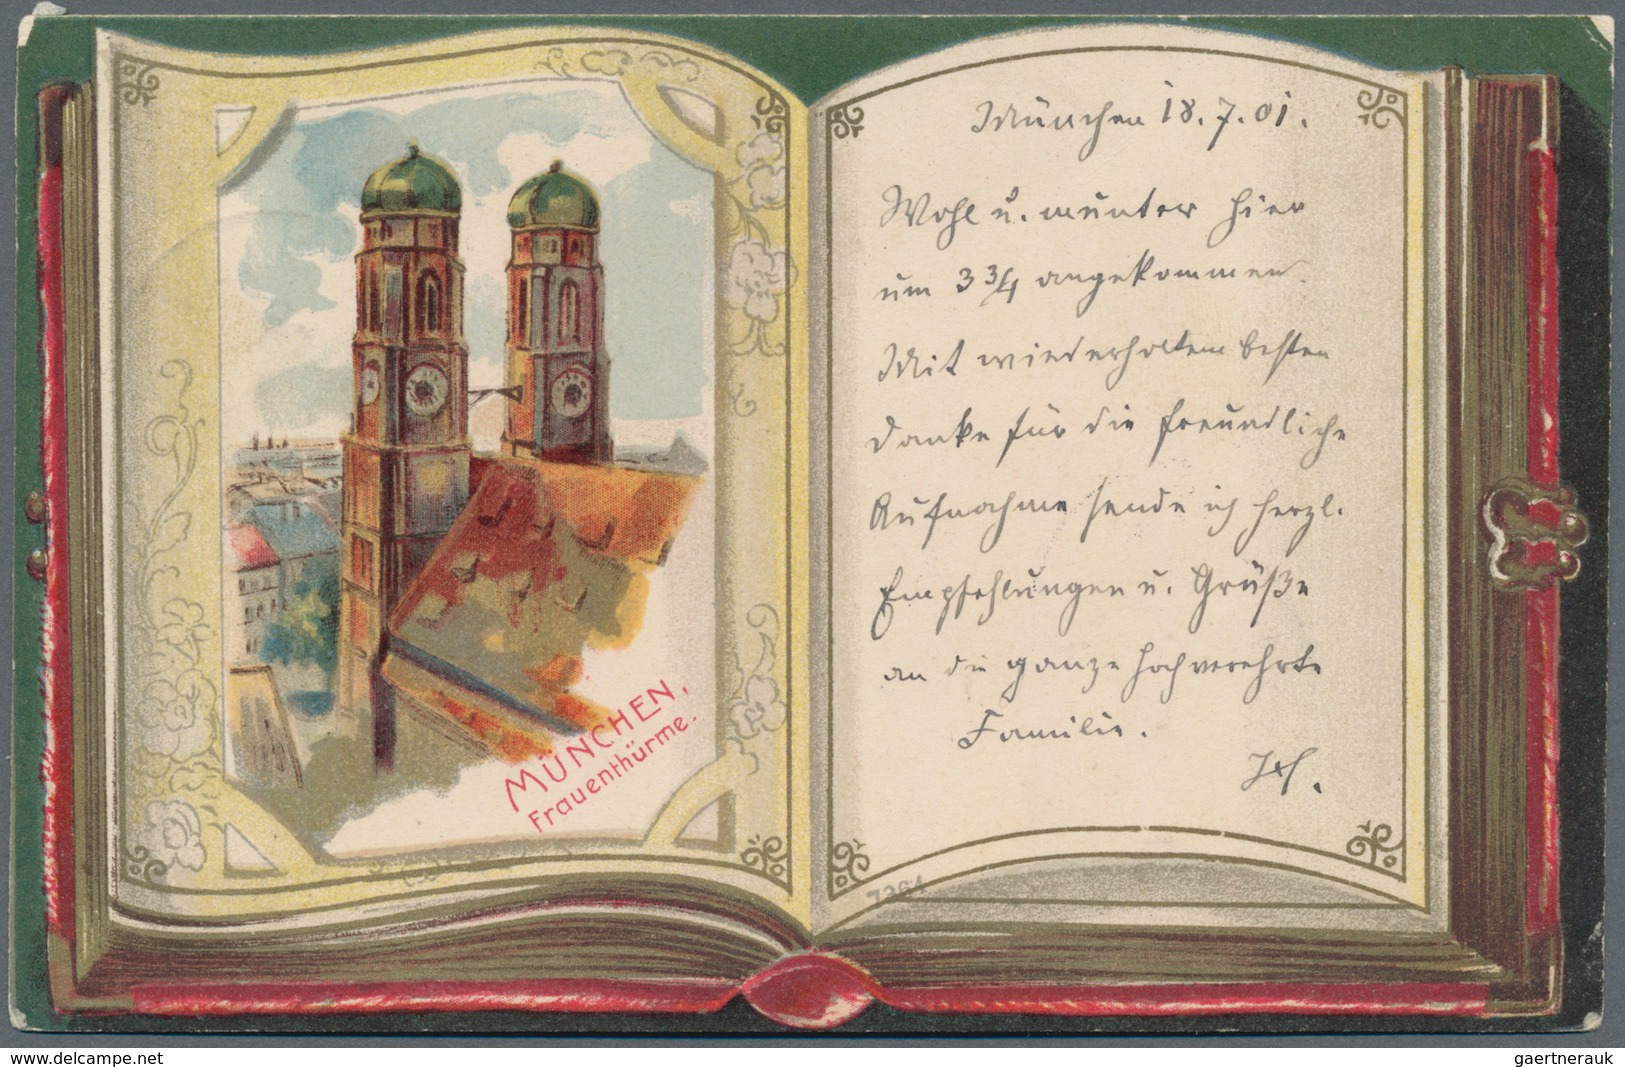 MÜNCHEN,
Frauenthürme.
München 18.7.01.
Wohl u. munter hier
um 3 3/4 angekommen.
Mit wiederholtem besten
Danke für die freundliche
Aufnahme sende ich herzl.
Empfehlungen u. Grüße
an die ganze hochverehrte
Familie.
7364
www.delcampe.net
gaertnerauk